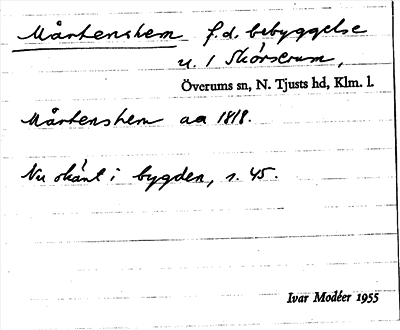 Mårtenshem f.d. bebyggelse
u. 1 Skörserum,
Överums sn, N. Tjusts hd, Klm. l.
Mårtenshem aa 1818.
Nu okänt i bygden, s. 45.
Ivar Modéer 1955